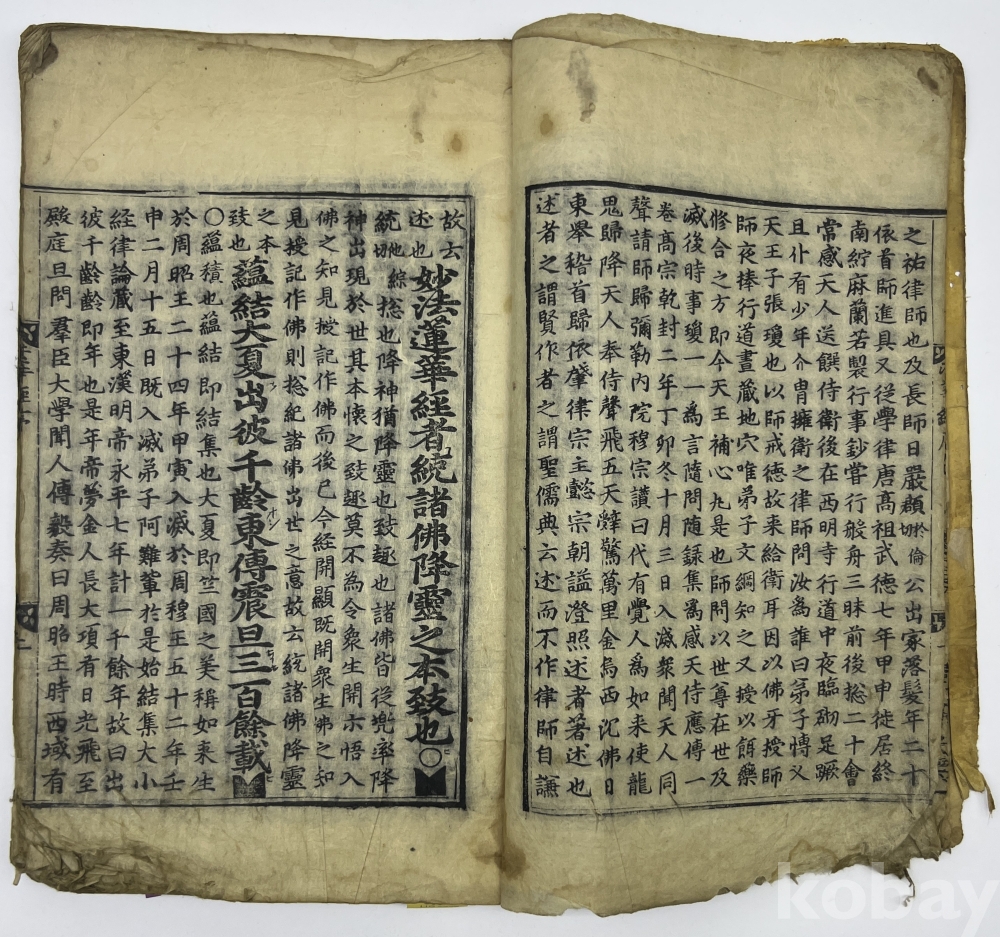 之祐律師也及長師日嚴頵於倫切公出家落髮年二十
依首師進具又從學律唐高祖武德七年甲申徙居終
南紵麻蘭若製行事鈔甞行般舟三昧前後捴二十會
常感天人送饌侍衛後在西明寺行道中夜臨砌足蹶
且仆有少年介胄擁衛之律師問汝爲誰曰弟子慱乂
天王子張瓊也以師戒德故来給衛耳因以佛牙授師
師夜捧行道晝藏地穴唯弟子文綱知之又授以餌藥
修合之方即今天王補心丸是也師問以世尊在世及
滅後時事瓊一一爲言隨問隨録集爲感天侍應傳一
卷高宗乾封二年丁夘冬十月三日入滅衆聞天人同
聲請師歸彌勒内院穆宗讚曰代有覺人爲如来使龍
鬼歸降天人奉侍聲飛五天辤驚萬里金烏西沉佛日
東舉稽首歸依肇律宗主懿宗朝謚澄照述者著述也
述者之謂賢作者之謂聖儒典云述而不作律師自謙
故云述也
妙法蓮華經者統諸佛降靈之本致也〇
統他綜切捴也降神猶降靈也致趣也諸佛皆從兜率降
神出現於世其本懷之致趣莫不為令衆生開示悟入
佛之知見授記作佛而後已今經開顯既開衆生佛之知
見授記作佛則捴紀諸佛出世之意故云統諸佛降靈
之本致也
蘊結大夏出彼千齡東傳震旦三百餘載
〇蘊積也蘊結即結集也大夏即竺國之美稱如来生
於周昭王二十四年甲寅入滅於周穆王五十二年壬
申二月十五日既入滅弟子阿難軰於是始結集大小
經律論藏至東漢明帝永平七年計一千餘年故曰出
彼千齡齡即年也是年帝夢金人長大項有日光飛至
殿庭旦問羣臣大學聞人傳毅奏曰周昭王時西域有
kobay